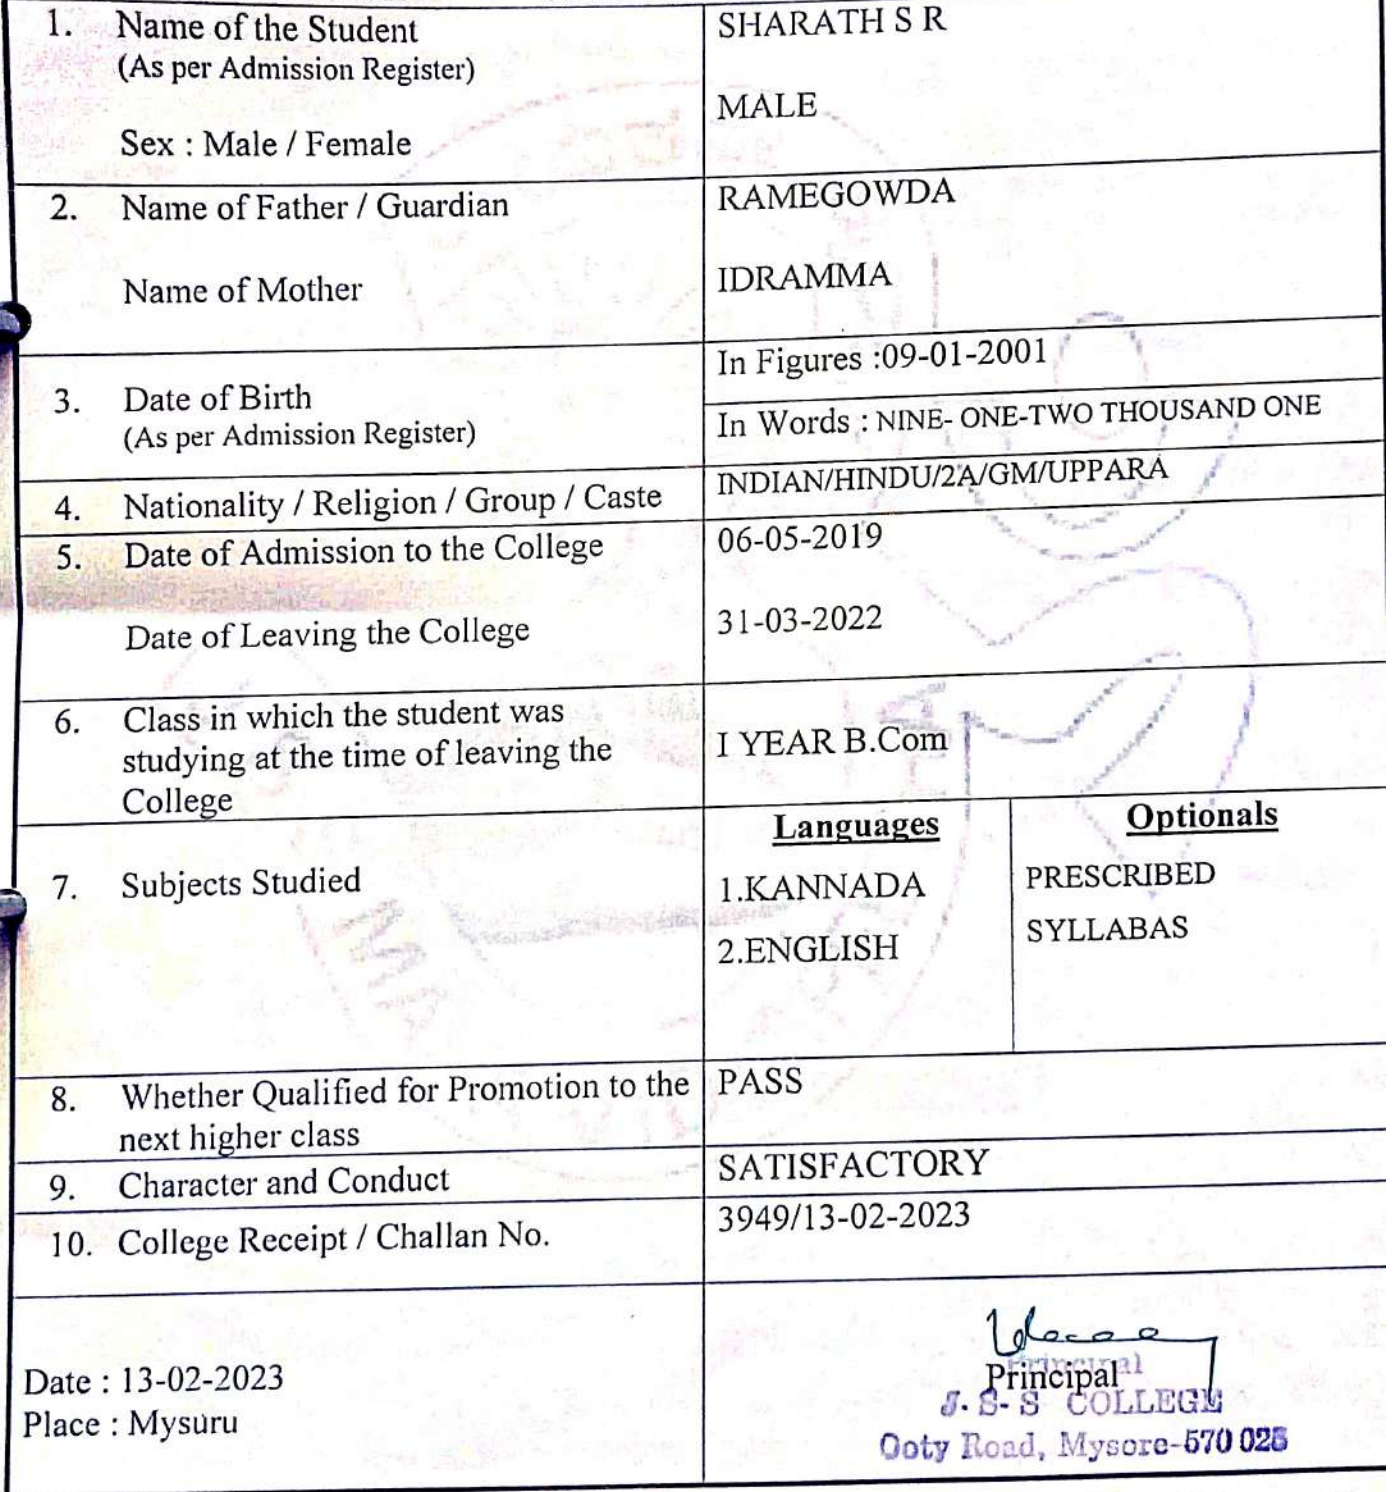 1. Name of the Student
(As per Admission Register)
SHARATH S R
Sex : Male / Female
MALE
2. Name of Father / Guardian
RAMEGOWDA
Name of Mother
IDRAMMA
3. Date of Birth
(As per Admission Register)
In Figures :09-01-2001
In Words : NINE- ONE-TWO THOUSAND ONE
4. Nationality / Religion / Group / Caste
INDIAN/HINDU/2A/GM/UPPARA
5. Date of Admission to the College
06-05-2019
Date of Leaving the College
31-03-2022
6. Class in which the student was
studying at the time of leaving the
College
I YEAR B.Com
7. Subjects Studied
Languages
1.KANNADA
2.ENGLISH
Optionals
PRESCRIBED
SYLLABAS
8. Whether Qualified for Promotion to the
next higher class
PASS
9. Character and Conduct
SATISFACTORY
10. College Receipt / Challan No.
3949/13-02-2023
Date : 13-02-2023
Place : Mysuru
Principal
Principal
J. S- S COLLEGE
Ooty Road, Mysore-570 025